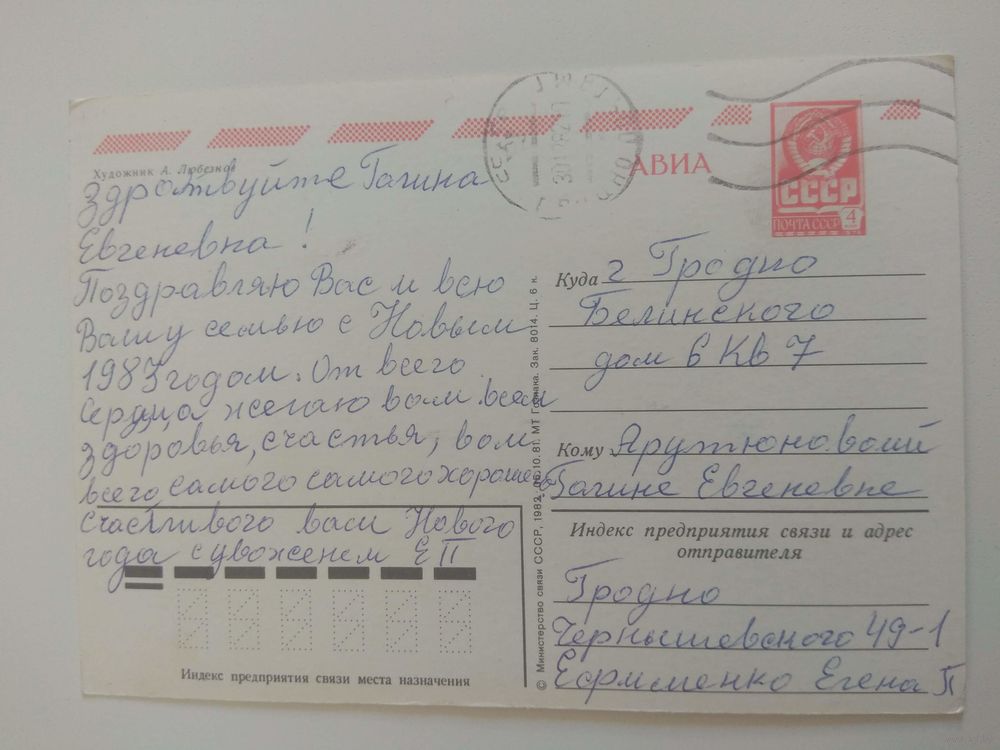 Художник А. Любезнов
АВИА
СССР
ПОЧТА СССР 4
Здраствуйте Галина
Евгеневна!
Поздравляю Вас и всю
Вашу семью с Новым
1983 годом. От всего
сердца желаю вам всем
здоровья, счастья, вам
всего самого самого хорошего
счастливого вам Нового
года с уваженем ЕП
Индекс предприятия связи места назначения
© Министерство связи СССР, 1982. 06.10.81. МТ Гознака. Зак. 8014. Ц. 6 к.
Куда г Гродно
Белинского
дом 6 Кв 7
Кому Арутюновой
Галине Евгеневне
Индекс предприятия связи и адрес
отправителя
Гродно
Чернышевского 49-1
Ефрименко Егена П